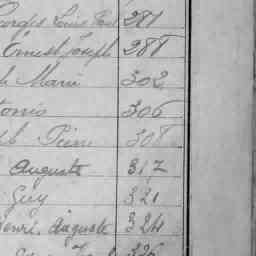 Georges Louis Paul 287
Ernest Joseph 288
Marie 302
306
Pierre 308
Auguste 317
Guy 321
Henri Auguste 324
326